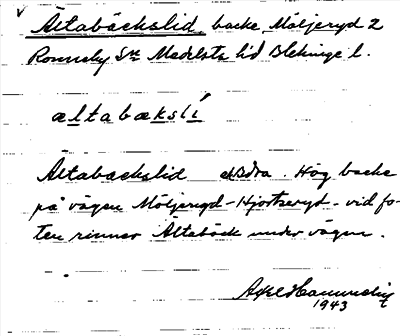 Ältabäckslid, backe, Möljeryd 2
Ronneby Sn Medelsta hd Blekinge l.
æltabækslí
Ältabäckslid Hög backe
på vägen Möljeryd-Hjortseryd - vid fo-
ten rinner Ältabäck under vägen.
1943